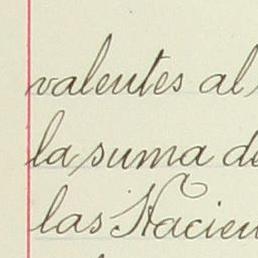 valentes al
la suma de
las Hacien